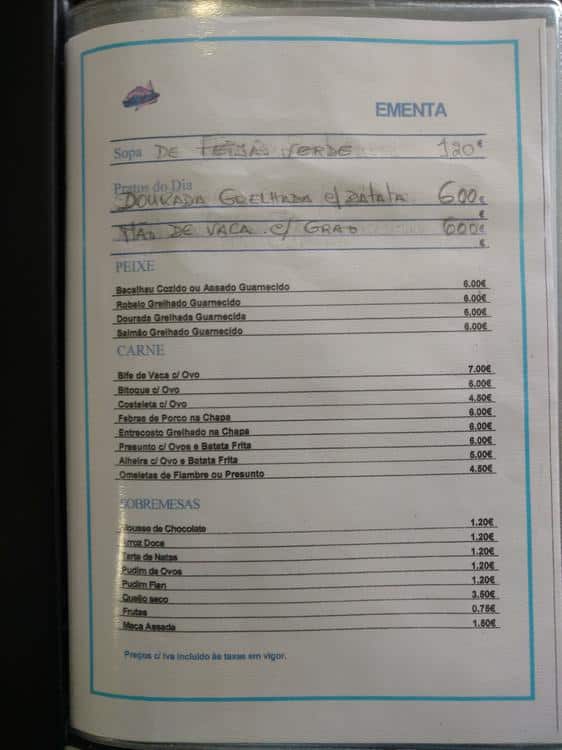 EMENTA
Sopa DE FEIJÃO VERDE 120€
Pratos do Dia
DOURADA GRELHADA c/BATATA 600€
€
MÃO DE VACA c/ GRÃO 600€
€
PEIXE
Bacalhau Cozido ou Assado Guarnecido 6.00€
Robalo Grelhado Guarnecido 6.00€
Dourada Grelhada Guarnecida 6.00€
Salmão Grelhado Guarnecido 6.00€
CARNE
Bife de Vaca c/ Ovo 7.00€
Bitoque c/ Ovo 6.00€
Costeleta c/ Ovo 4.50€
Febras de Porco na Chapa 6.00€
Entrecosto Grelhado na Chapa 6.00€
Presunto c/ Ovos e Batata Frita 6.00€
Alheira c/ Ovo e Batata Frita 5.00€
Omeletas de Fiambre ou Presunto 4.50€
SOBREMESAS
Mousse de Chocolate 1.20€
Arroz Doce 1.20€
Tarte de Natas 1.20€
Pudim de Ovos 1.20€
Pudim Flan 1.20€
Queijo seco 3.50€
Frutas 0.75€
Maça Assada 1.50€
Preços c/ Iva incluido às taxas em vigor.